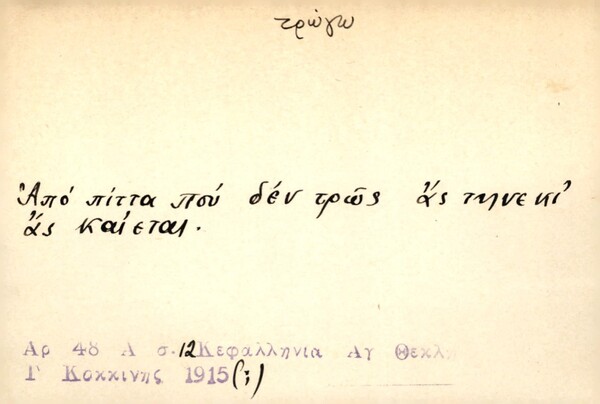 τρώγω
Ἀπό πίττα πού δέν τρῶς ἄς τηνε κι'
ἄς καίεται.
Αρ 48 Α σ. 12 Κεφαλληνια Αγ Θεκλη
Γ Κοκκινης 1915 (;)